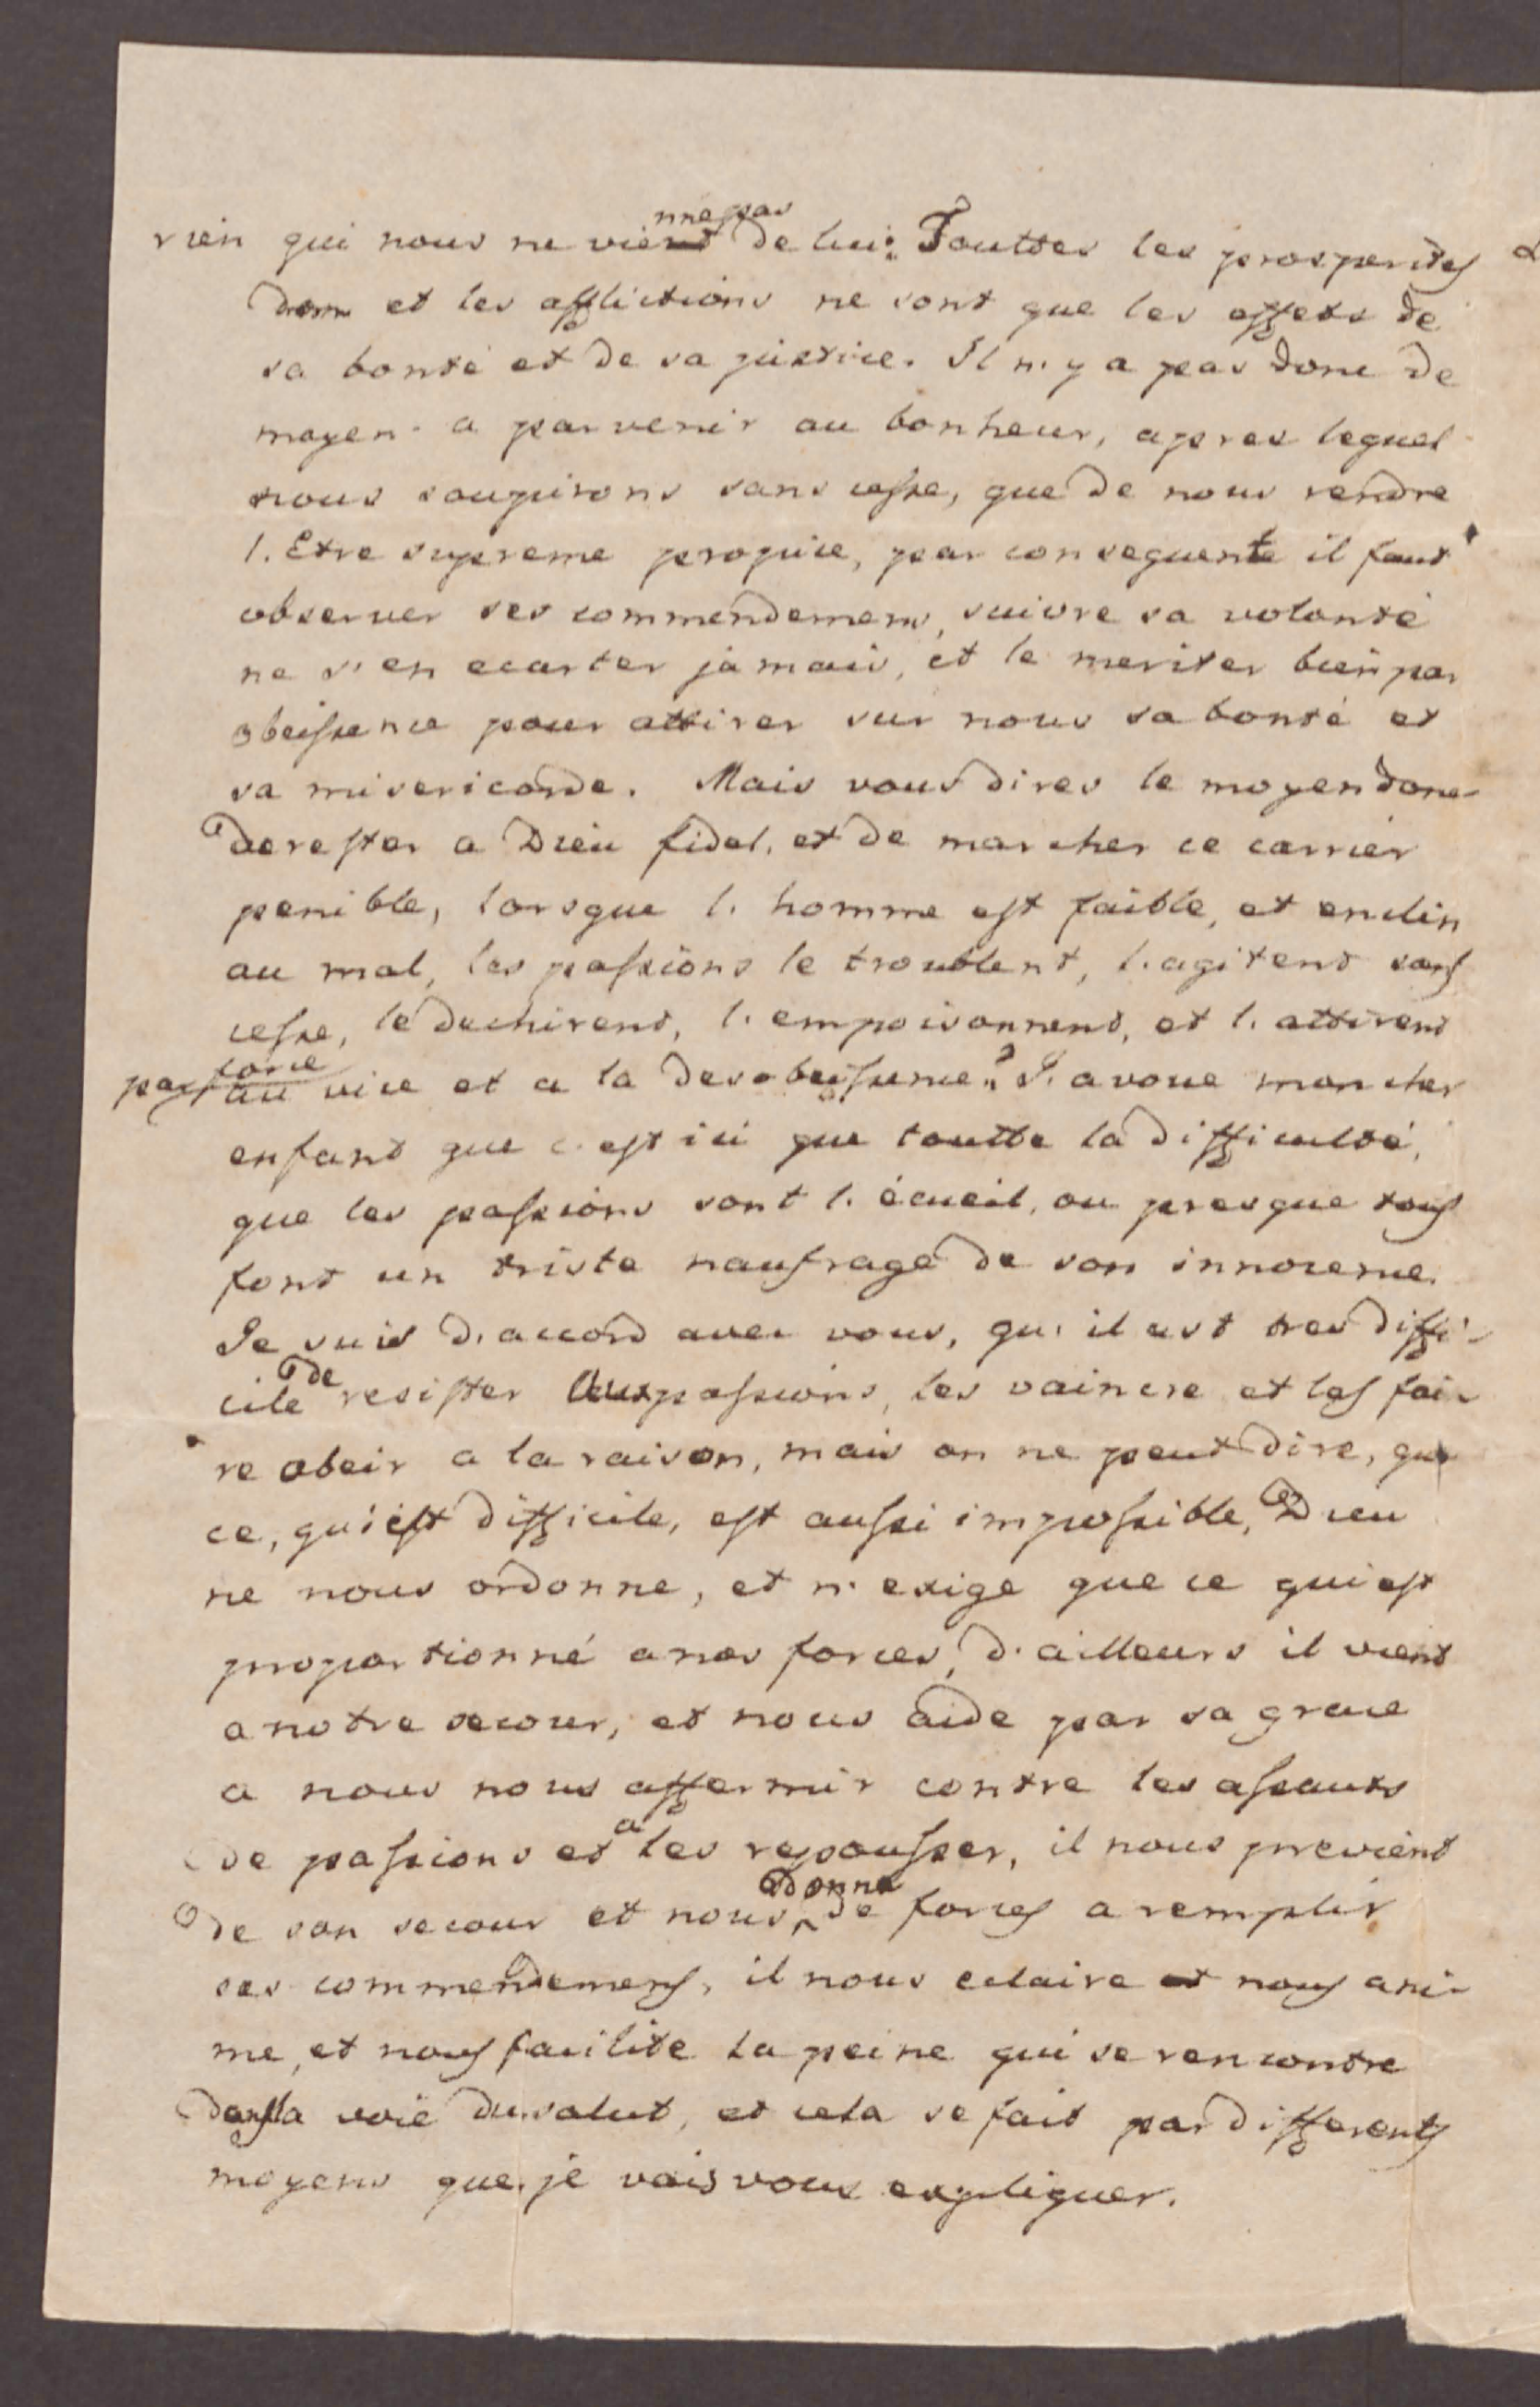 rien qui nous ne vienne pas de lui: Touttes les prosperites
donc et les afflictions ne sont que les effets de
sa bonté et de sa justice. Il n'y a pas donc de
moyen a parvenir au bonheur, apres lequel
nous soupirons sans cesse, que de nous rendre
l'Etre supreme propice, par consequente il faut
observer ses commendemens, suivre sa volonté
ne s'en ecarter jamais, et le meriter bien par
obeissence pour attirer sur nous sa bonté et
sa misericorde. Mais vous dires le moyen donc
de rester a Dieu fidel, et de marcher ce carrier
penible, lorsque l'homme est faible, et enclin
au mal, les passions le troublent, l'agitent sans
cesse, le dechirent, l'empoisonnent, et l'attirent
par force au vice et a la desobeissence? J'avoue mon cher
enfant que c'est ici que toutte la difficulté,
que les passions sont l'écueil, ou presque tous
font un triste naufrage de son innocence.
Je suis d'accord avec vous, qu'il est tres diffi-
cile de resister aux passions, les vaincre et les fai-
re obeir a la raison, mais on ne peut dire, que
ce, qui est difficile, est aussi impossible, Dieu
ne nous ordonne, et n'exige que ce qui est
proportionné a nos forces, d'ailleurs il vient
a notre secour, et nous aide par sa grace
a nous nous affermir contre les assauts
de passions et a les repousser, il nous previent
de son secour et nous donne de forces a remplir
ses commendemens, il nous eclaire et nous ani-
me, et nous facilite la peine qui se rencontre
dans la voie du salut, et cela se fait par differents
moyens que je vais vous expliquer.